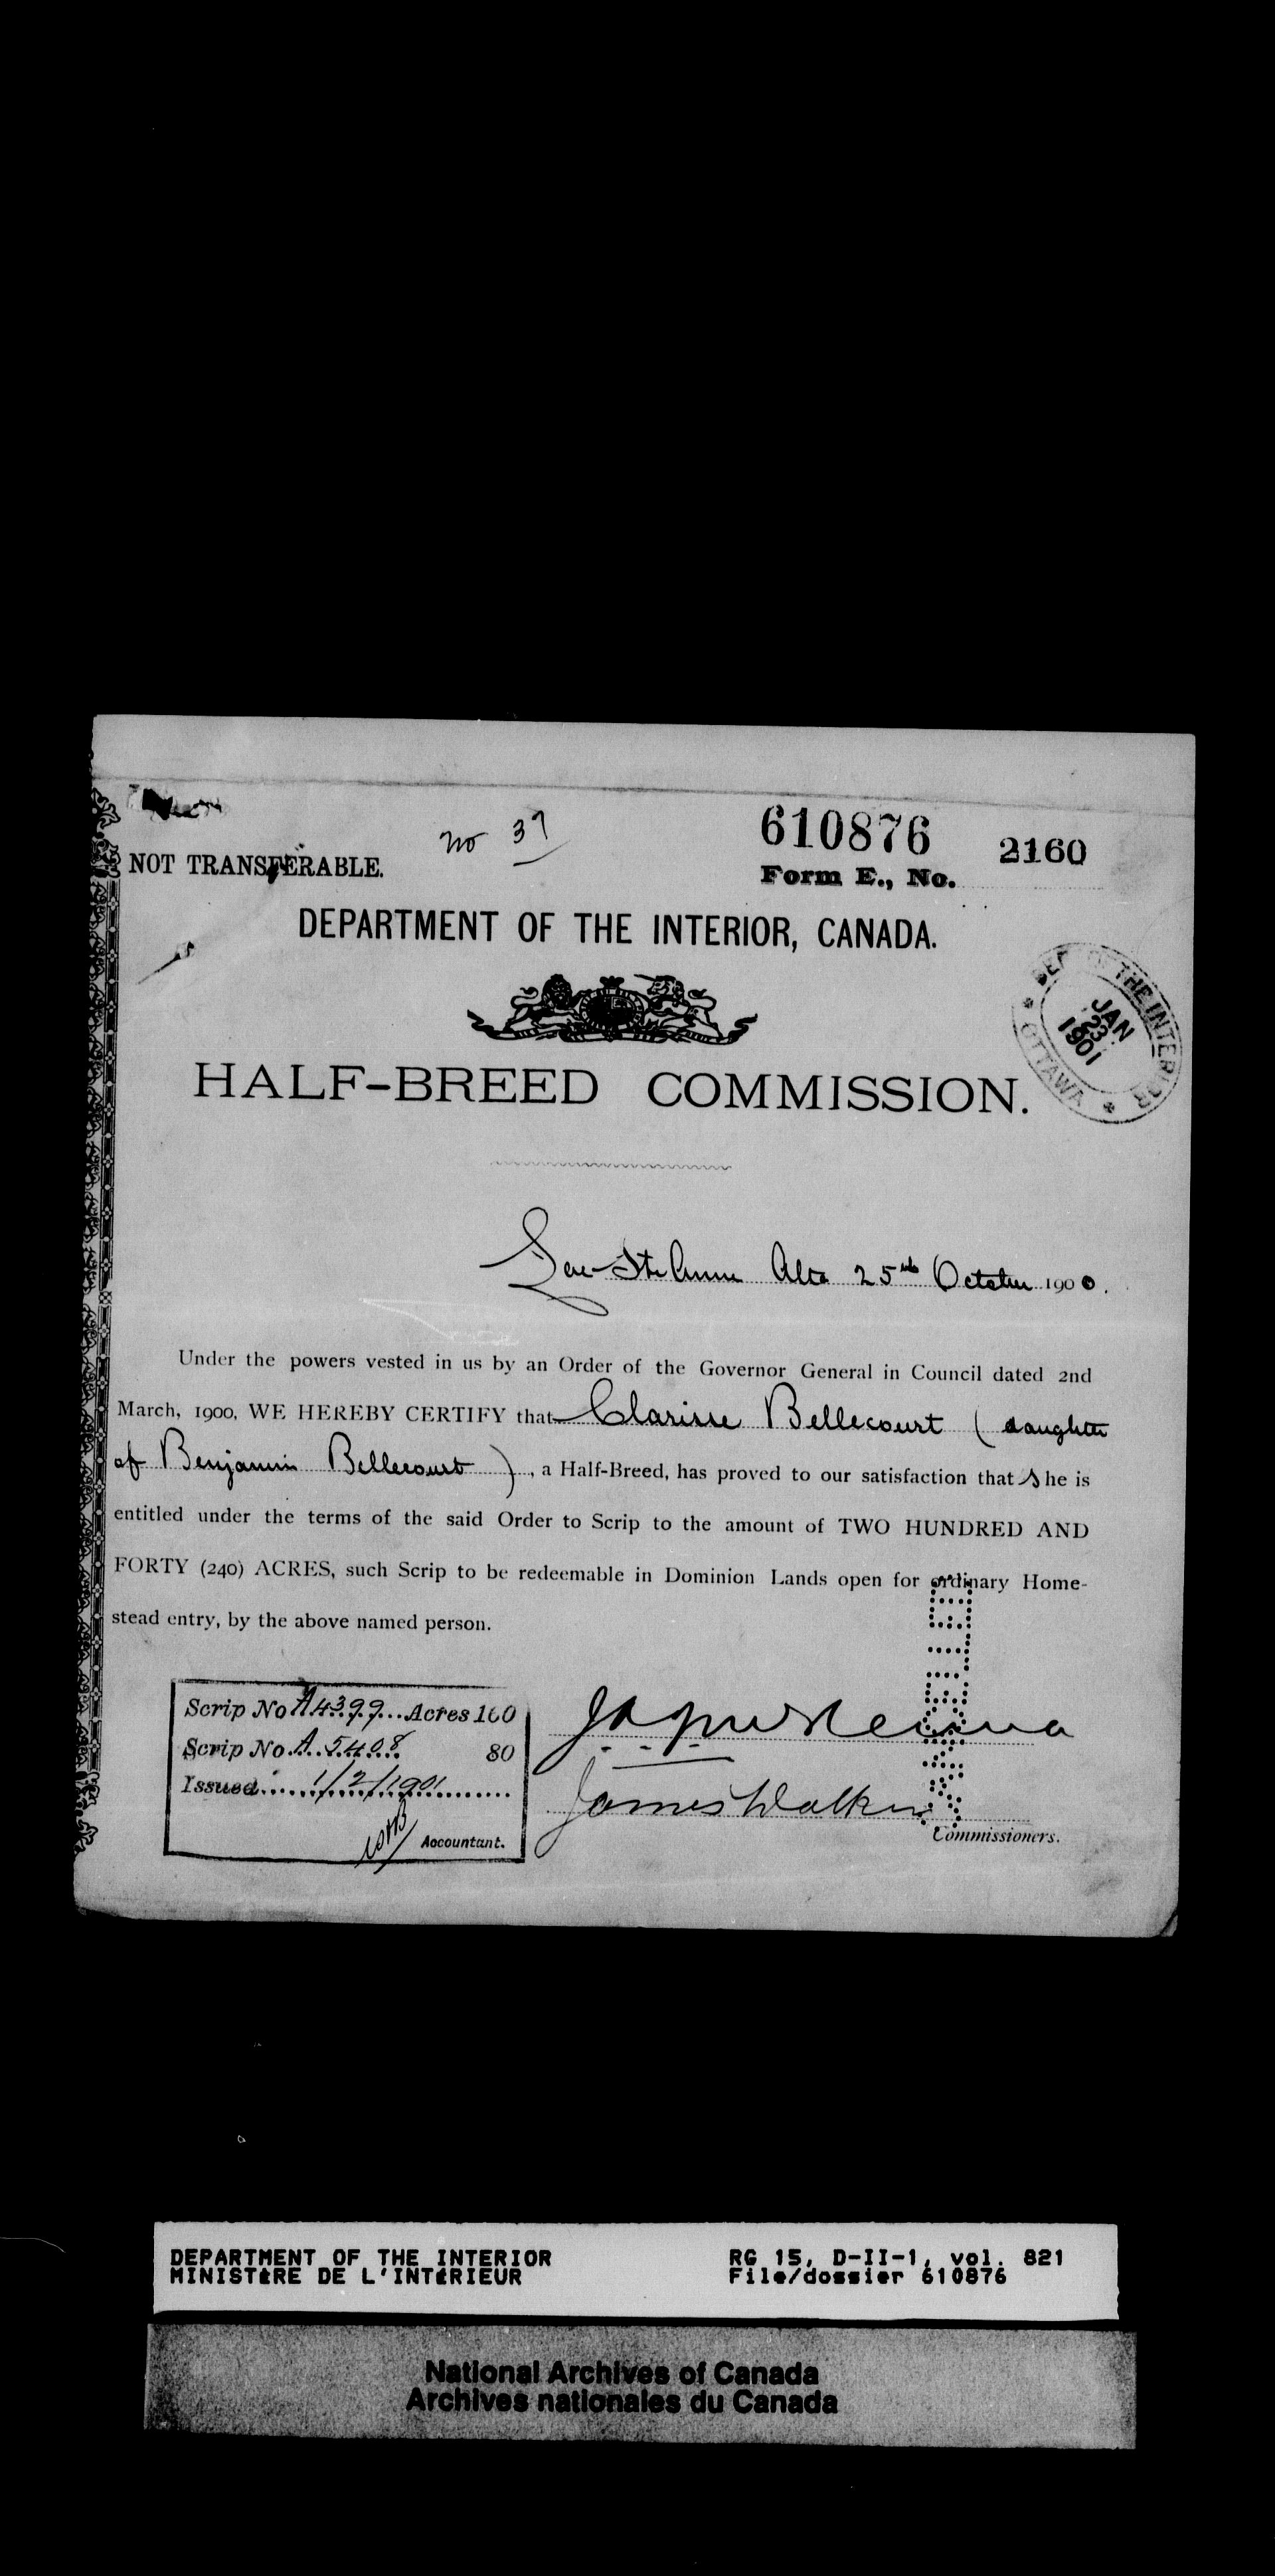 No 37
610876
2160
NOT TRANSFERABLE.
Form E., No.
DEPARTMENT OF THE INTERIOR, CANADA.
DEPT OF THE INTERIOR
JAN
23
1901
OTTAWA
HALF-BREED COMMISSION.
Lac Ste Anne Alta 25th October 1900.
Under the powers vested in us by an Order of the Governor General in Council dated 2nd
March, 1900, WE HEREBY CERTIFY that Clarisse Bellecourt (daughter
of Benjamin Bellecourt), a Half-Breed, has proved to our satisfaction that she is
entitled under the terms of the said Order to Scrip to the amount of TWO HUNDRED AND
FORTY (240) ACRES, such Scrip to be redeemable in Dominion Lands open for ordinary Home-
stead entry, by the above named person.
Scrip No A4399 Acres 160
Scrip No. A. 5408 80
Issued 1/2/1901
Accountant.
James Walker
Commissioners.
DEPARTMENT OF THE INTERIOR
MINISTÈRE DE L'INTÉRIEUR
RG 15, D-II-1, vol. 821
File/dossier 610876
National Archives of Canada
Archives nationales du Canada